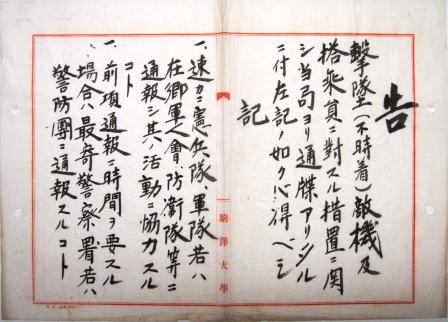 告
撃墜(不時着)敵機及
搭乗員ニ対スル措置ニ関
シ当局ヨリ通牒アリシ
ニ付左記ノ如ク心得ベシ
記
一、速カニ憲兵隊、軍隊若ハ
在郷軍人會、防衛隊等ニ
通報シ其ノ活動ニ協力スル
コト
一、前項通報ニ時間ヲ要スル
場合ハ最寄警察署若ハ
警防團ニ通報スルコト
駒澤大學